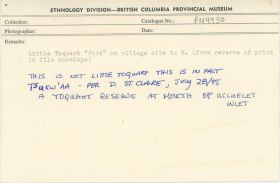 ETHNOLOGY DIVISION—BRITISH COLUMBIA PROVINCIAL MUSEUM
Collection: Catalogue No.: PN4950
Photographer: Date:
Remarks:
Little Toquart "Fort" on village site to N. (from reverse of print
in file envelope)
THIS IS NOT LITTLE TOQUART THIS IS IN FACT
- PER D. ST. CLAIRE, JULY 28/85
A TOQUAHT RESERVE AT MOUTH OF UCLUELET
INLET